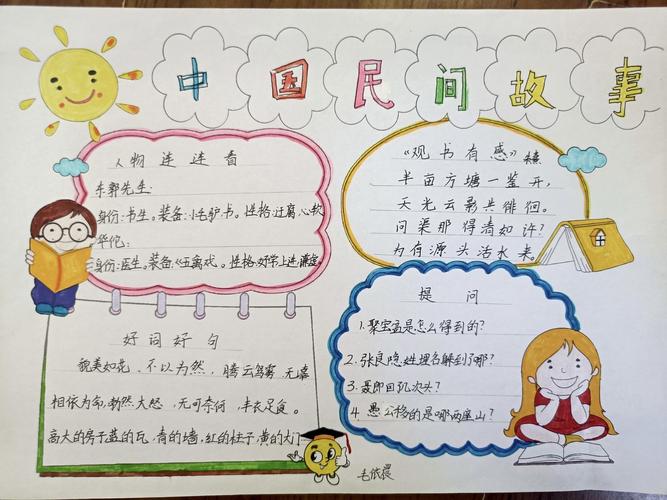 中国民间故事
人物连连看
东郭先生:
身份:书生。装备:小毛驴.书。性格:迂腐、心软
华佗:
身份:医生。装备:《五禽戏》。性格:好学上进、谦虚。
《观书有感》
半亩方塘一鉴开,
天光云影共徘徊。
问渠那得清如许?
为有源头活水来。
好词好句
貌美如花、不以为然,腾云驾雾、
相依为命,勃然大怒、无可奈何,丰衣足食。
高大的房子蓝的瓦,青的墙,红的柱子,黄的大门
提问
1.聚宝盆是怎么得到的?
2.张良隐姓埋名躲到了哪?
3.聂郎回几次头?
4 愚公移的是哪两座山?